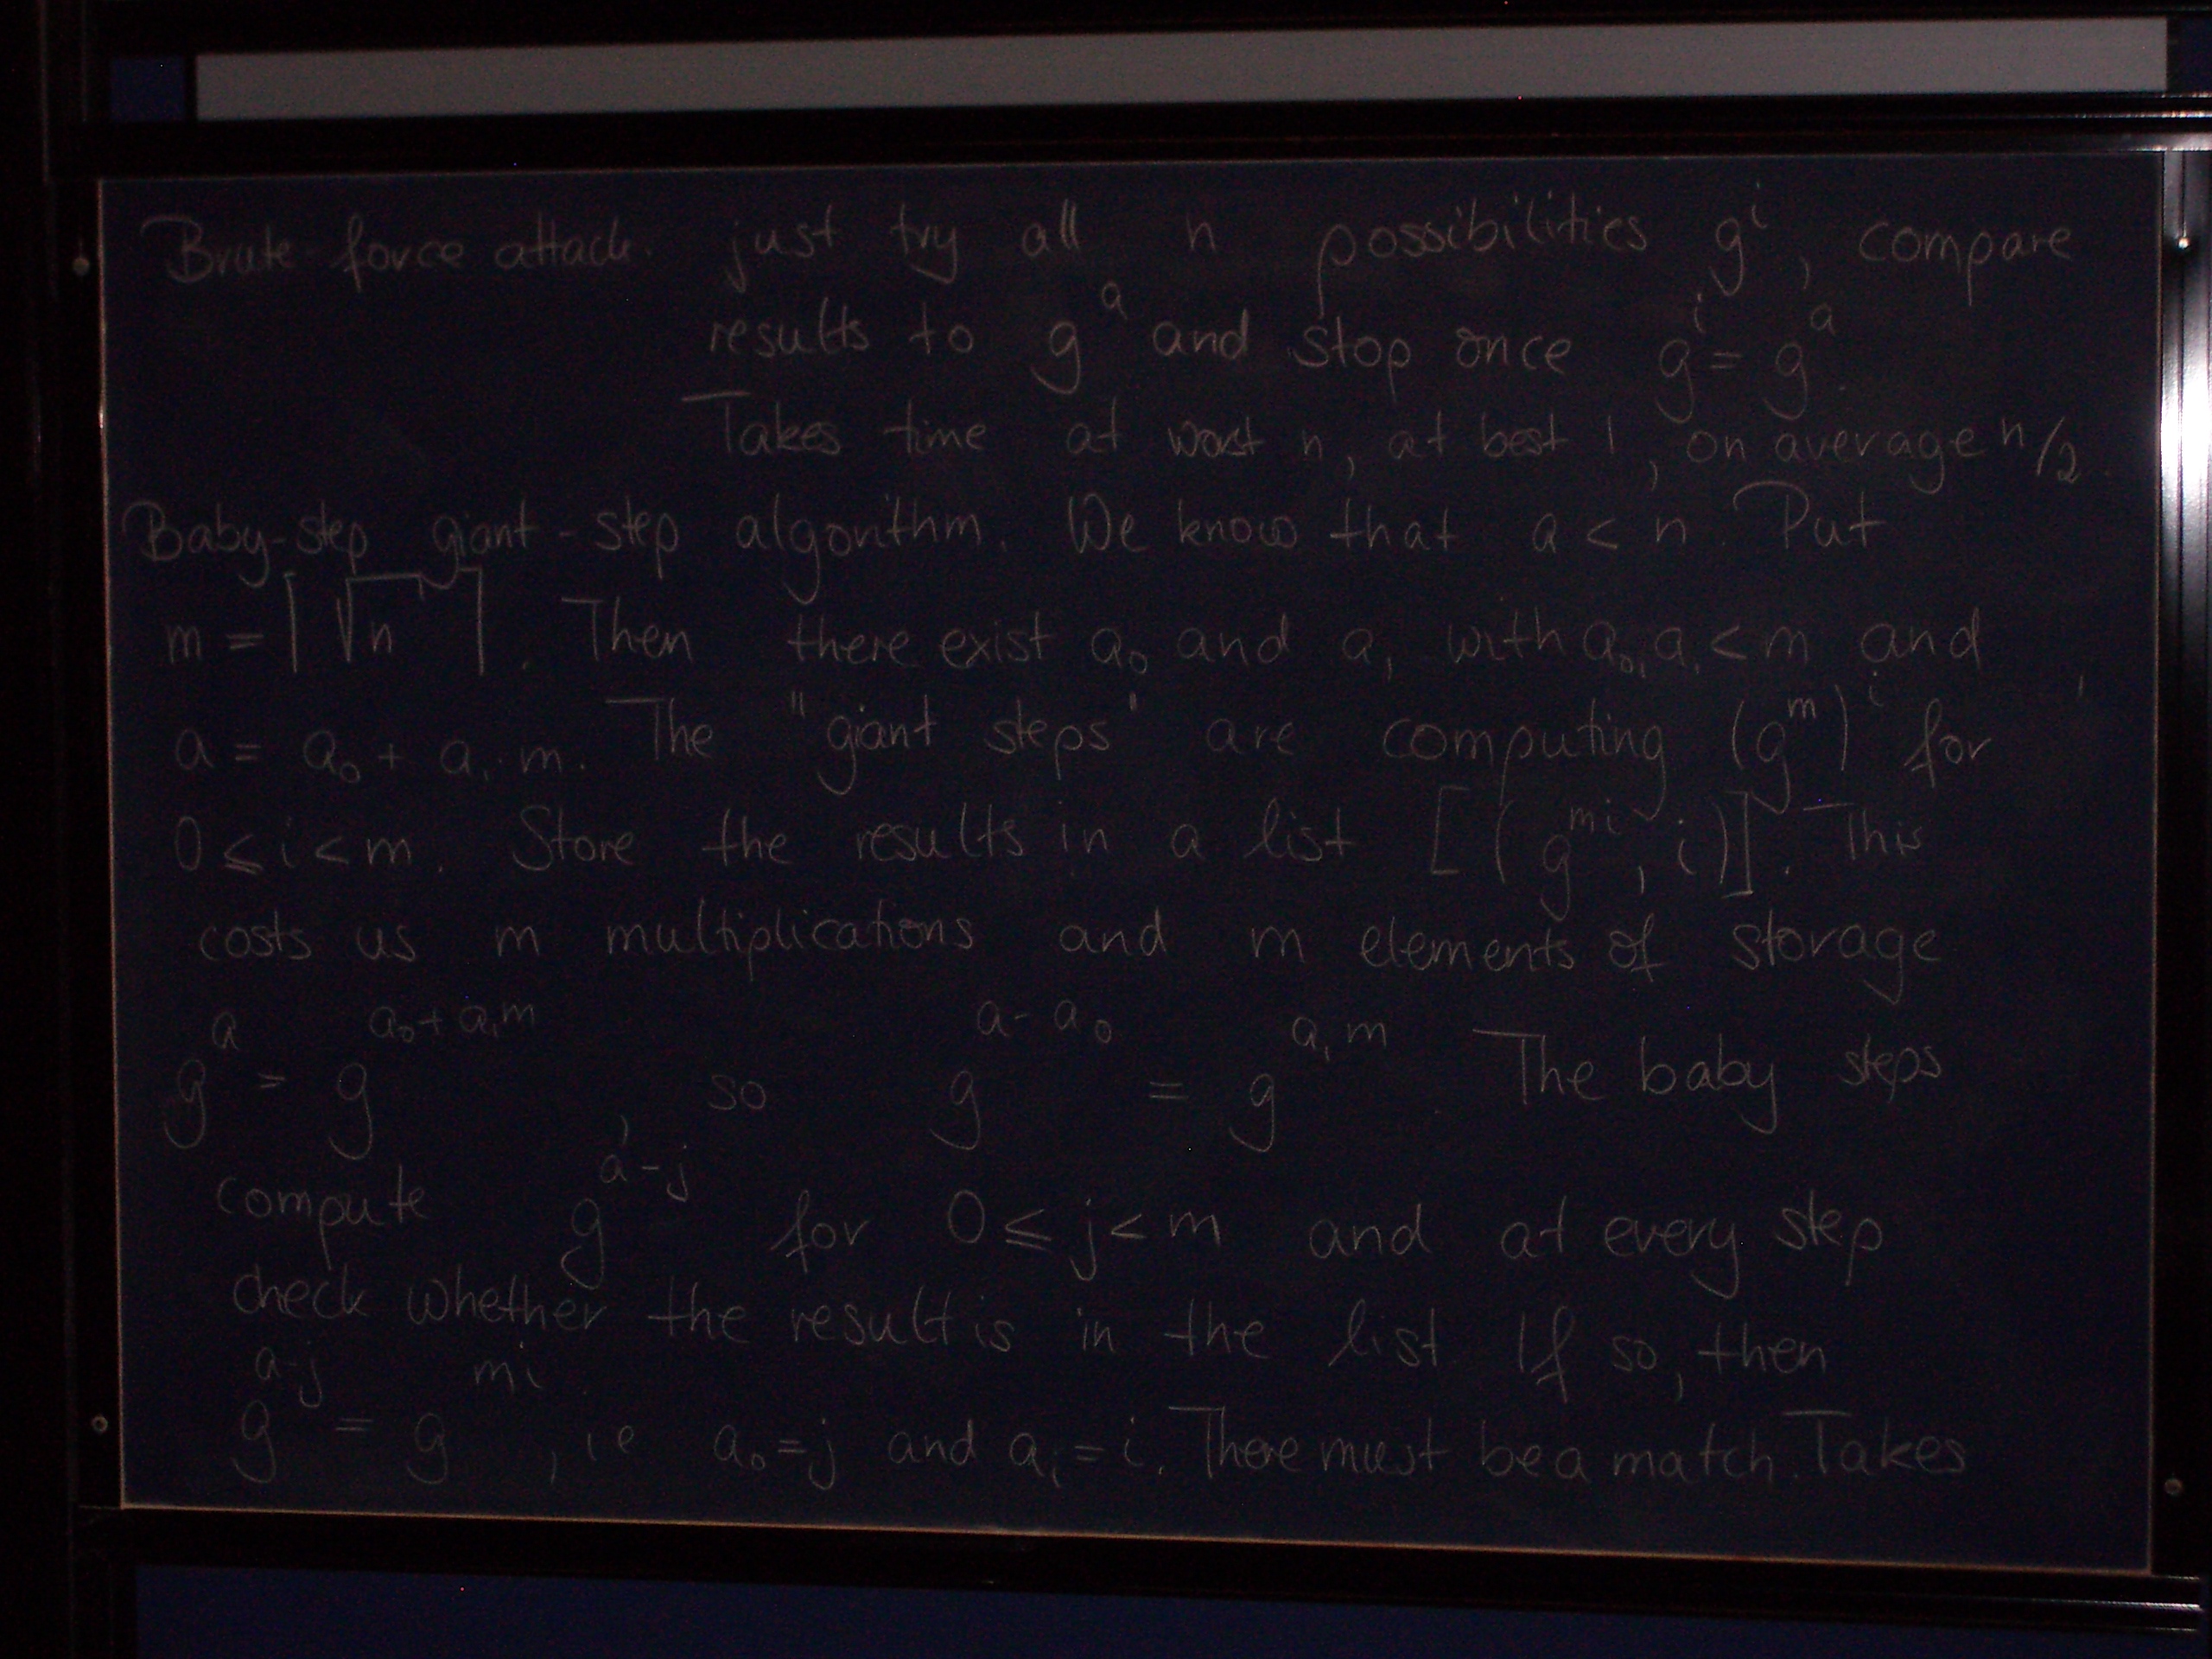 Brute-force attack. just try all n possibilities gⁱ, compare
results to gᵃ and stop once gⁱ = gᵃ.
Takes time at worst n, at best 1, on average n/2.
Baby-step giant-step algorithm. We know that a < n. Put
m = ⌈√n⌉. Then there exist a₀ and a₁ with a₀, a₁ < m and
a = a₀ + a₁·m. The "giant steps" are computing (g^m)^i for
0 ≤ i < m. Store the results in a list [(g^{mi}, i)]. This
costs us m multiplications and m elements of storage
g^a = g^{a₀+a₁m}, so g^{a-a₀} = g^{a₁m} The baby steps
compute g^{a-j} for 0 ≤ j < m and at every step
check whether the result is in the list If so, then
g^{a-j} = g^{mi}, ie a₀ = j and a₁ = i. There must be a match. Takes